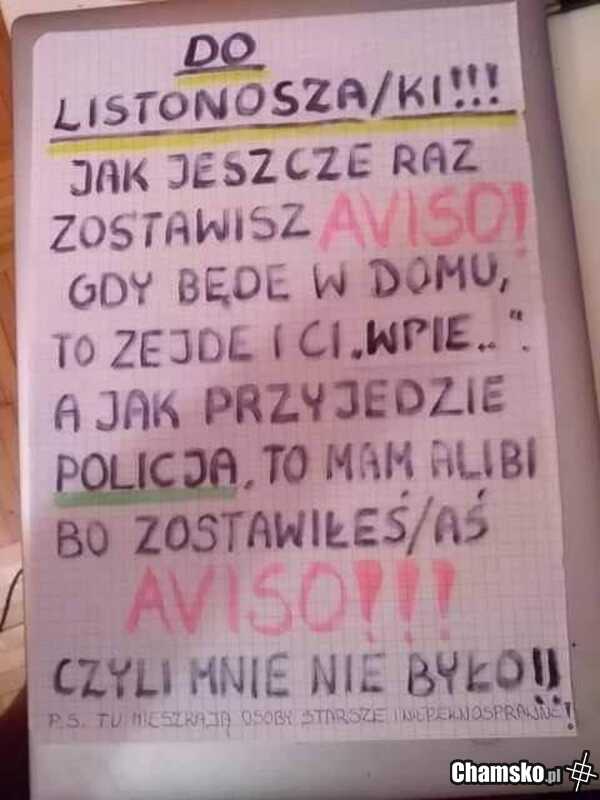 DO
LISTONOSZA/KI!!!
JAK JESZCZE RAZ
ZOSTAWISZ AVISO!
GDY BĘDE W DOMU,
TO ZEJDE I CI „WPIE..".
A JAK PRZYJEDZIE
POLICJA, TO MAM ALIBI
BO ZOSTAWIŁEŚ/AŚ
AVISO!!!
CZYLI MNIE NIE BYŁO!!
P.S. TU MIESZKAJĄ OSOBY STARSZE I NIEPEŁNOSPRAWNE!
Chamsko.pl